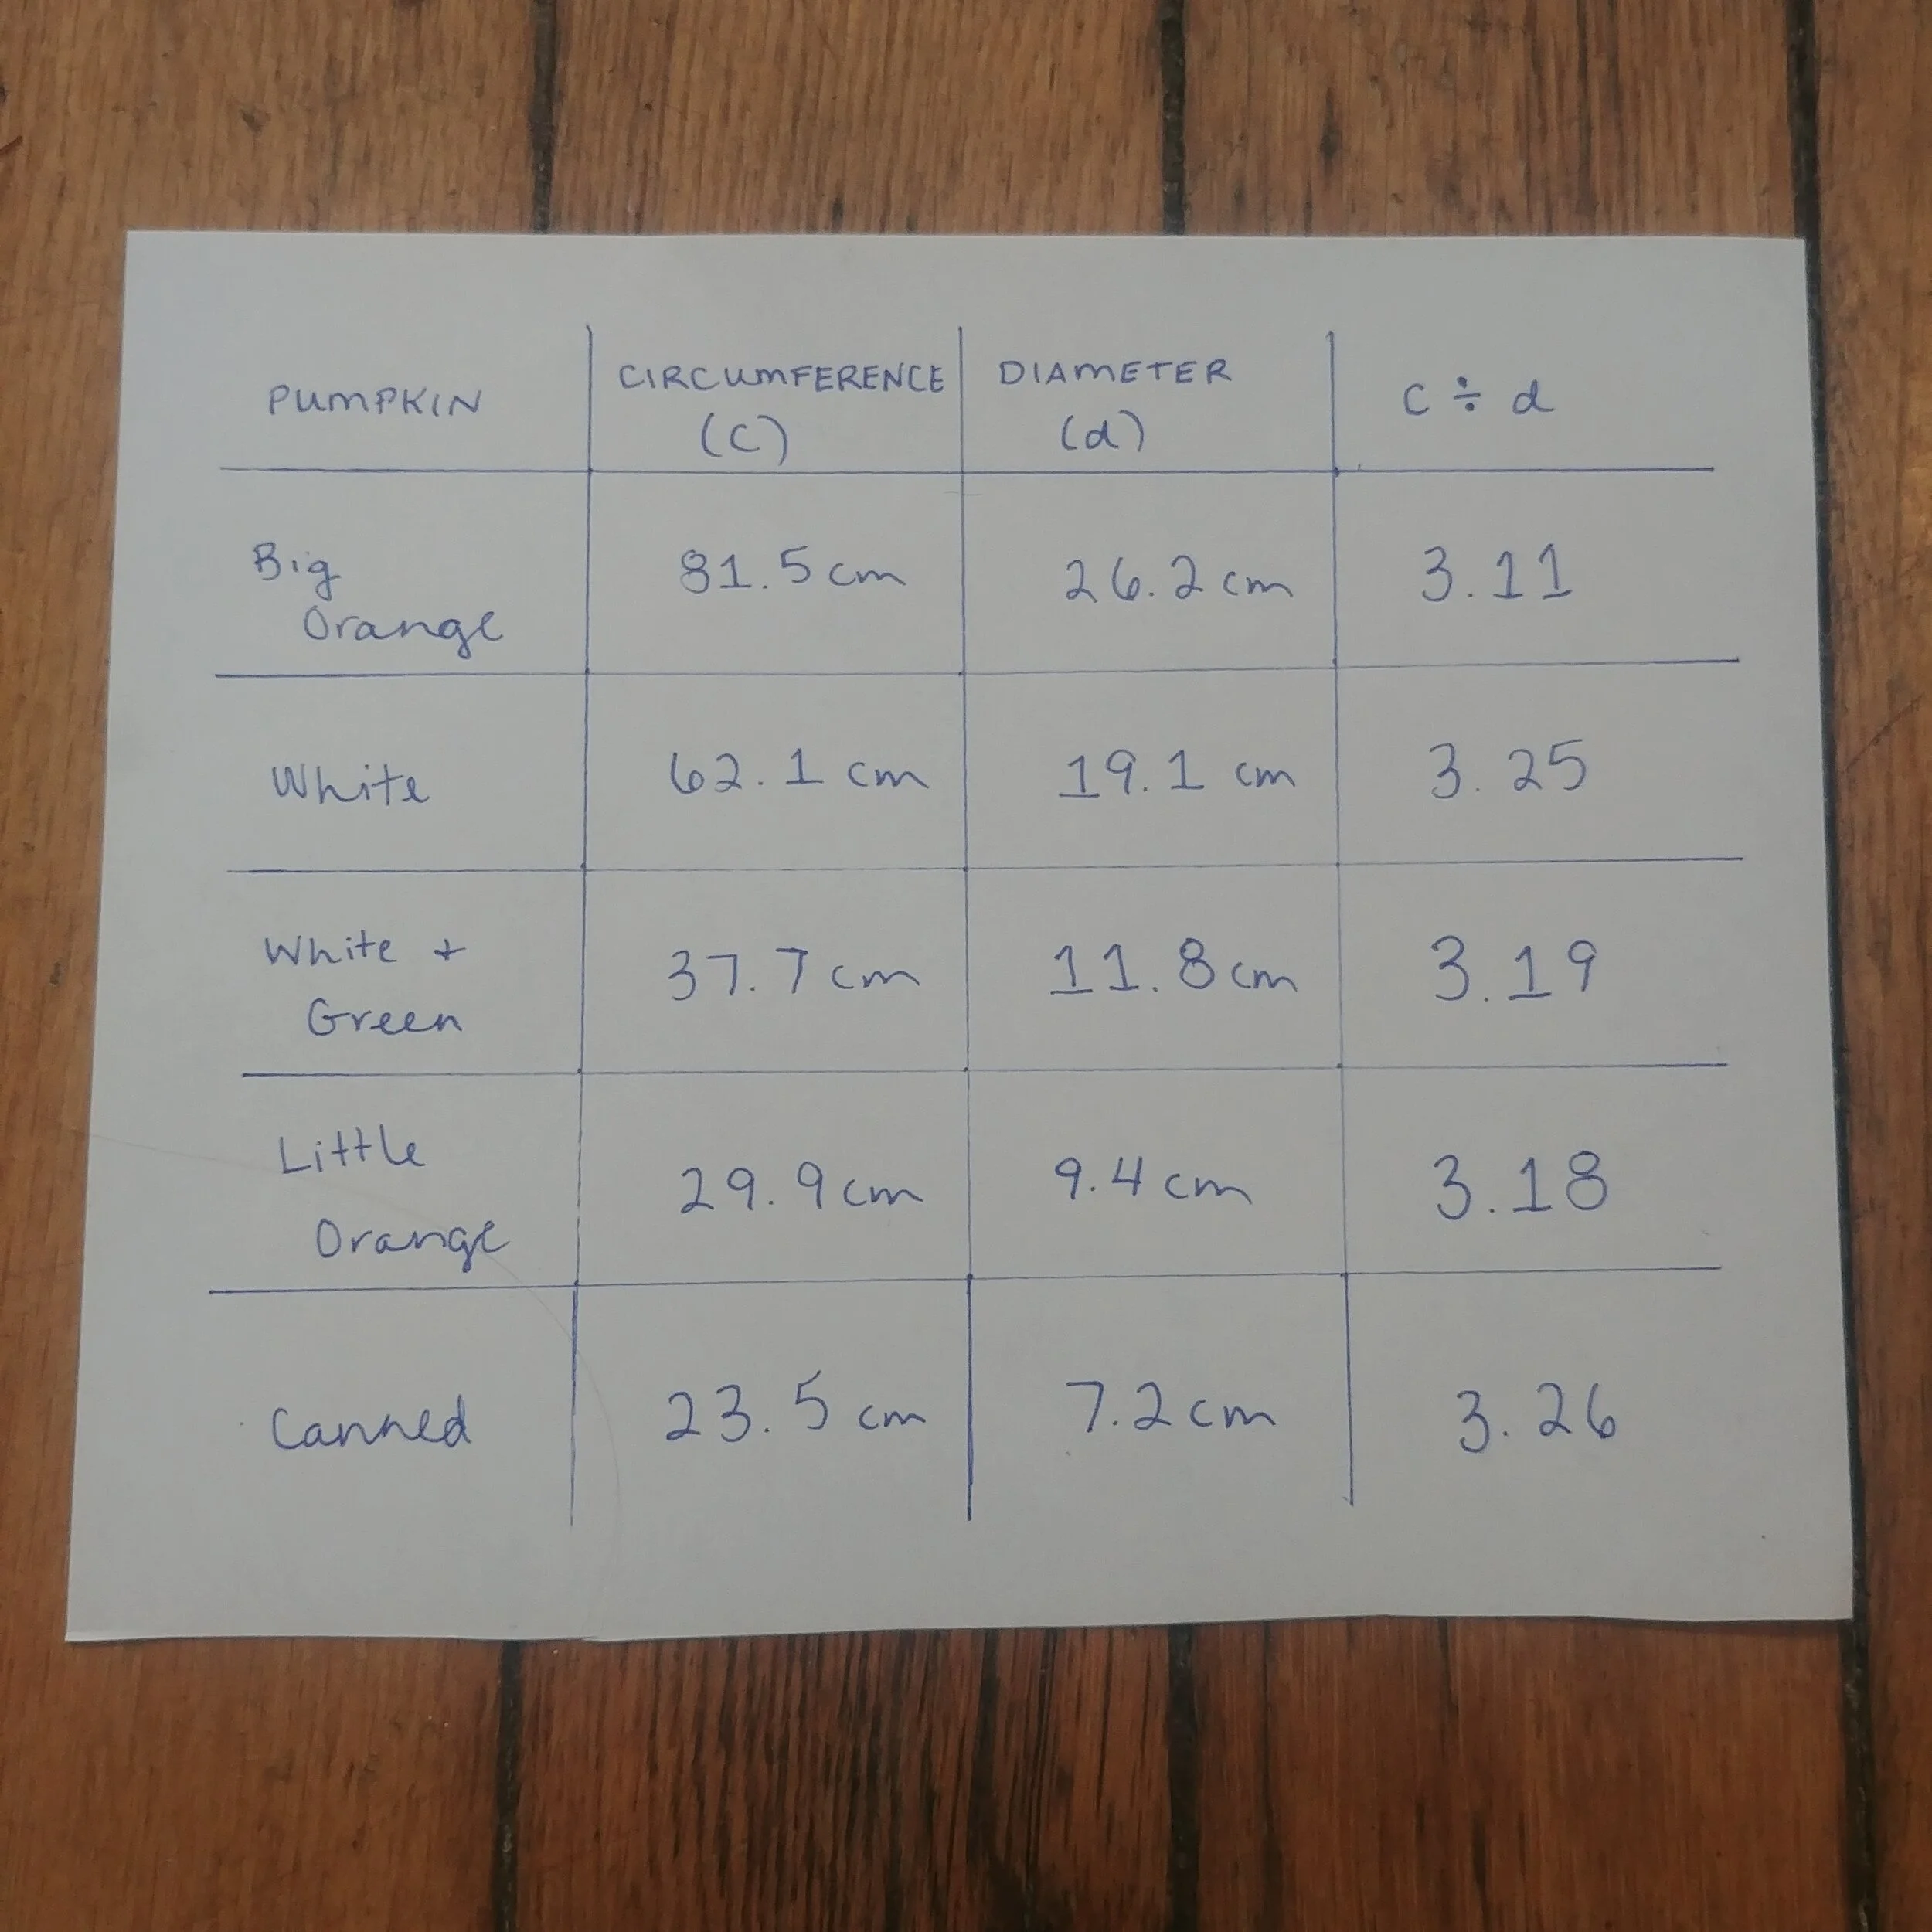 PUMPKIN CIRCUMFERENCE (C) DIAMETER (d) C ÷ d
Big Orange 81.5 cm 26.2 cm 3.11
White 62.1 cm 19.1 cm 3.25
White + Green 37.7 cm 11.8 cm 3.19
Little Orange 29.9 cm 9.4 cm 3.18
Canned 23.5 cm 7.2 cm 3.26